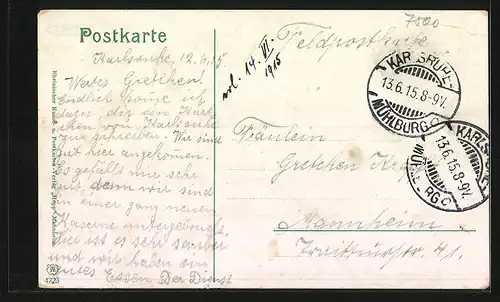 7500
Postkarte
Feldpostkarte
Karlsruhe, 12.6.15.
vol. 14. VI. 1915
Wertes Gretchen!
Endlich komme ich
dazu, dir ein Kärt
chen von Karlsruhe
zuzuschreiben. Wir sind
gut hier angekommen.
Es gefällt mir sehr
gut, denn wir sind
in einer ganz neuen
Kaserne untergebracht,
hier ist es sehr sauber
und wir haben ein
gutes Essen. Der Dienst
KARLSRUHE-
13.6.15.8-9V.
MÜHLBURG C
KARLSRUHE-
13.6.15.8-9V.
MÜHLBURG C
Fräulein
Gretchen
Mannheim
41.
4723